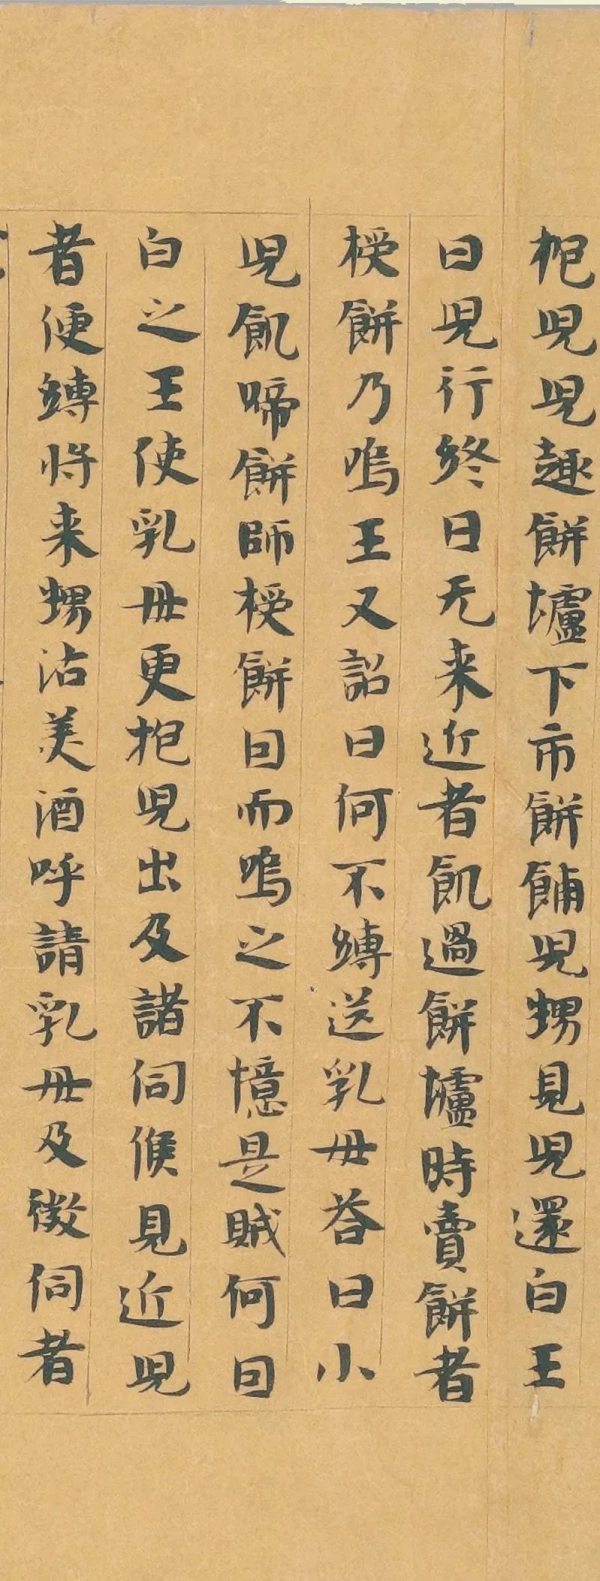 抱兒兒趣餅壚下市餅餔兒甥見兒還白王
曰兒行終日无来近者飢過餅壚時賣餅者
授餅乃嗚王又詔曰何不縛送乳母荅曰小
兒飢啼餅師授餅因而嗚之不憶是賊何因
白之王使乳母更抱兒出及諸伺候見近兒
者便縛将来甥沽美酒呼請乳母及徴伺者